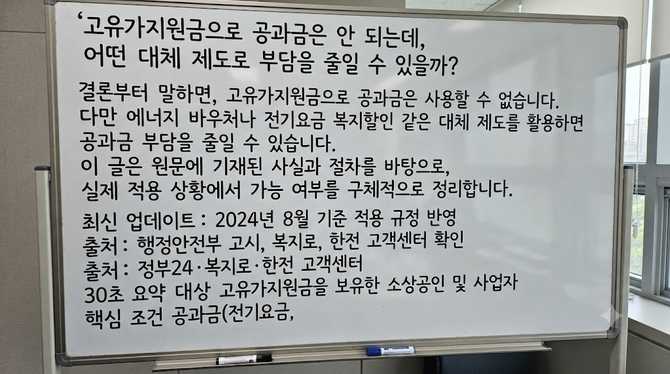 ‘고유가지원금으로 공과금은 안 되는데,
어떤 대체 제도로 부담을 줄일 수 있을까?
결론부터 말하면, 고유가지원금으로 공과금은 사용할 수 없습니다.
다만 에너지 바우처나 전기요금 복지할인 같은 대체 제도를 활용하면
공과금 부담을 줄일 수 있습니다.
이 글은 원문에 기재된 사실과 절차를 바탕으로,
실제 적용 상황에서 가능 여부를 구체적으로 정리합니다.
최신 업데이트 : 2024년 8월 기준 적용 규정 반영
출처 : 행정안전부 고시, 복지로, 한전 고객센터 확인
출처 : 정부24·복지로·한전 고객센터
30초 요약 대상 고유가지원금을 보유한 소상공인 및 사업자
핵심 조건 공과금(전기요금,